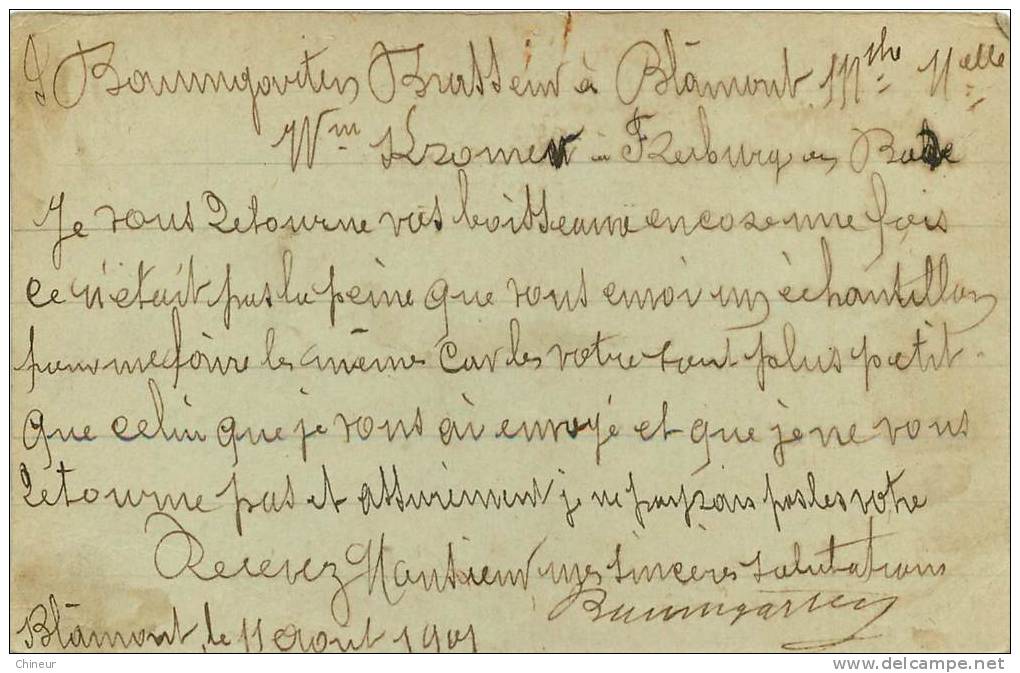 J Baumgarten Brasseur à Blâmont Mthe Melle
Wm Kromer à Freiburg en Bade
Je vous retourne vos boisseaux encore une fois
ce n'était pas la peine que vous envoi un échantillon
pour me faire les mêmes Car les votre sont plus petit
que celui que je vous ai envoyé et que je ne vous
retourne pas et assurément je ne payrais pas les votre
Recevez Monsieur mes sincères salutations
Baumgarten
Blâmont, le 11 Aout 1901
Chineur
http://www.delcampe.net